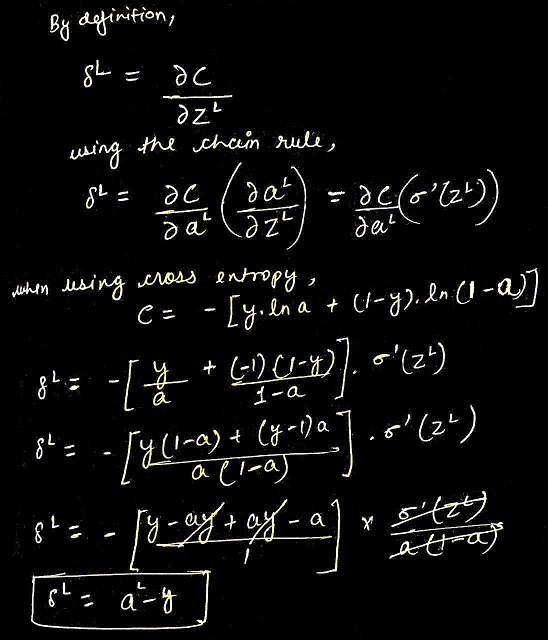 By definition,
δᴸ = ∂C / ∂zᴸ
using the chain rule,
δᴸ = ∂C/∂aᴸ (∂aᴸ/∂zᴸ) = ∂C/∂aᴸ (σ'(zᴸ))
when using cross entropy,
C = - [y.ln a + (1-y). ln (1-a)]
δᴸ = -[y/a + (-1)(1-y)/(1-a)] . σ'(zᴸ)
δᴸ = -[(y(1-a) + (y-1)a) / (a(1-a))] . σ'(zᴸ)
δᴸ = -[(y - ay + ay - a) / 1] × σ'(zᴸ) / a(1-a)
δᴸ = aᴸ-y